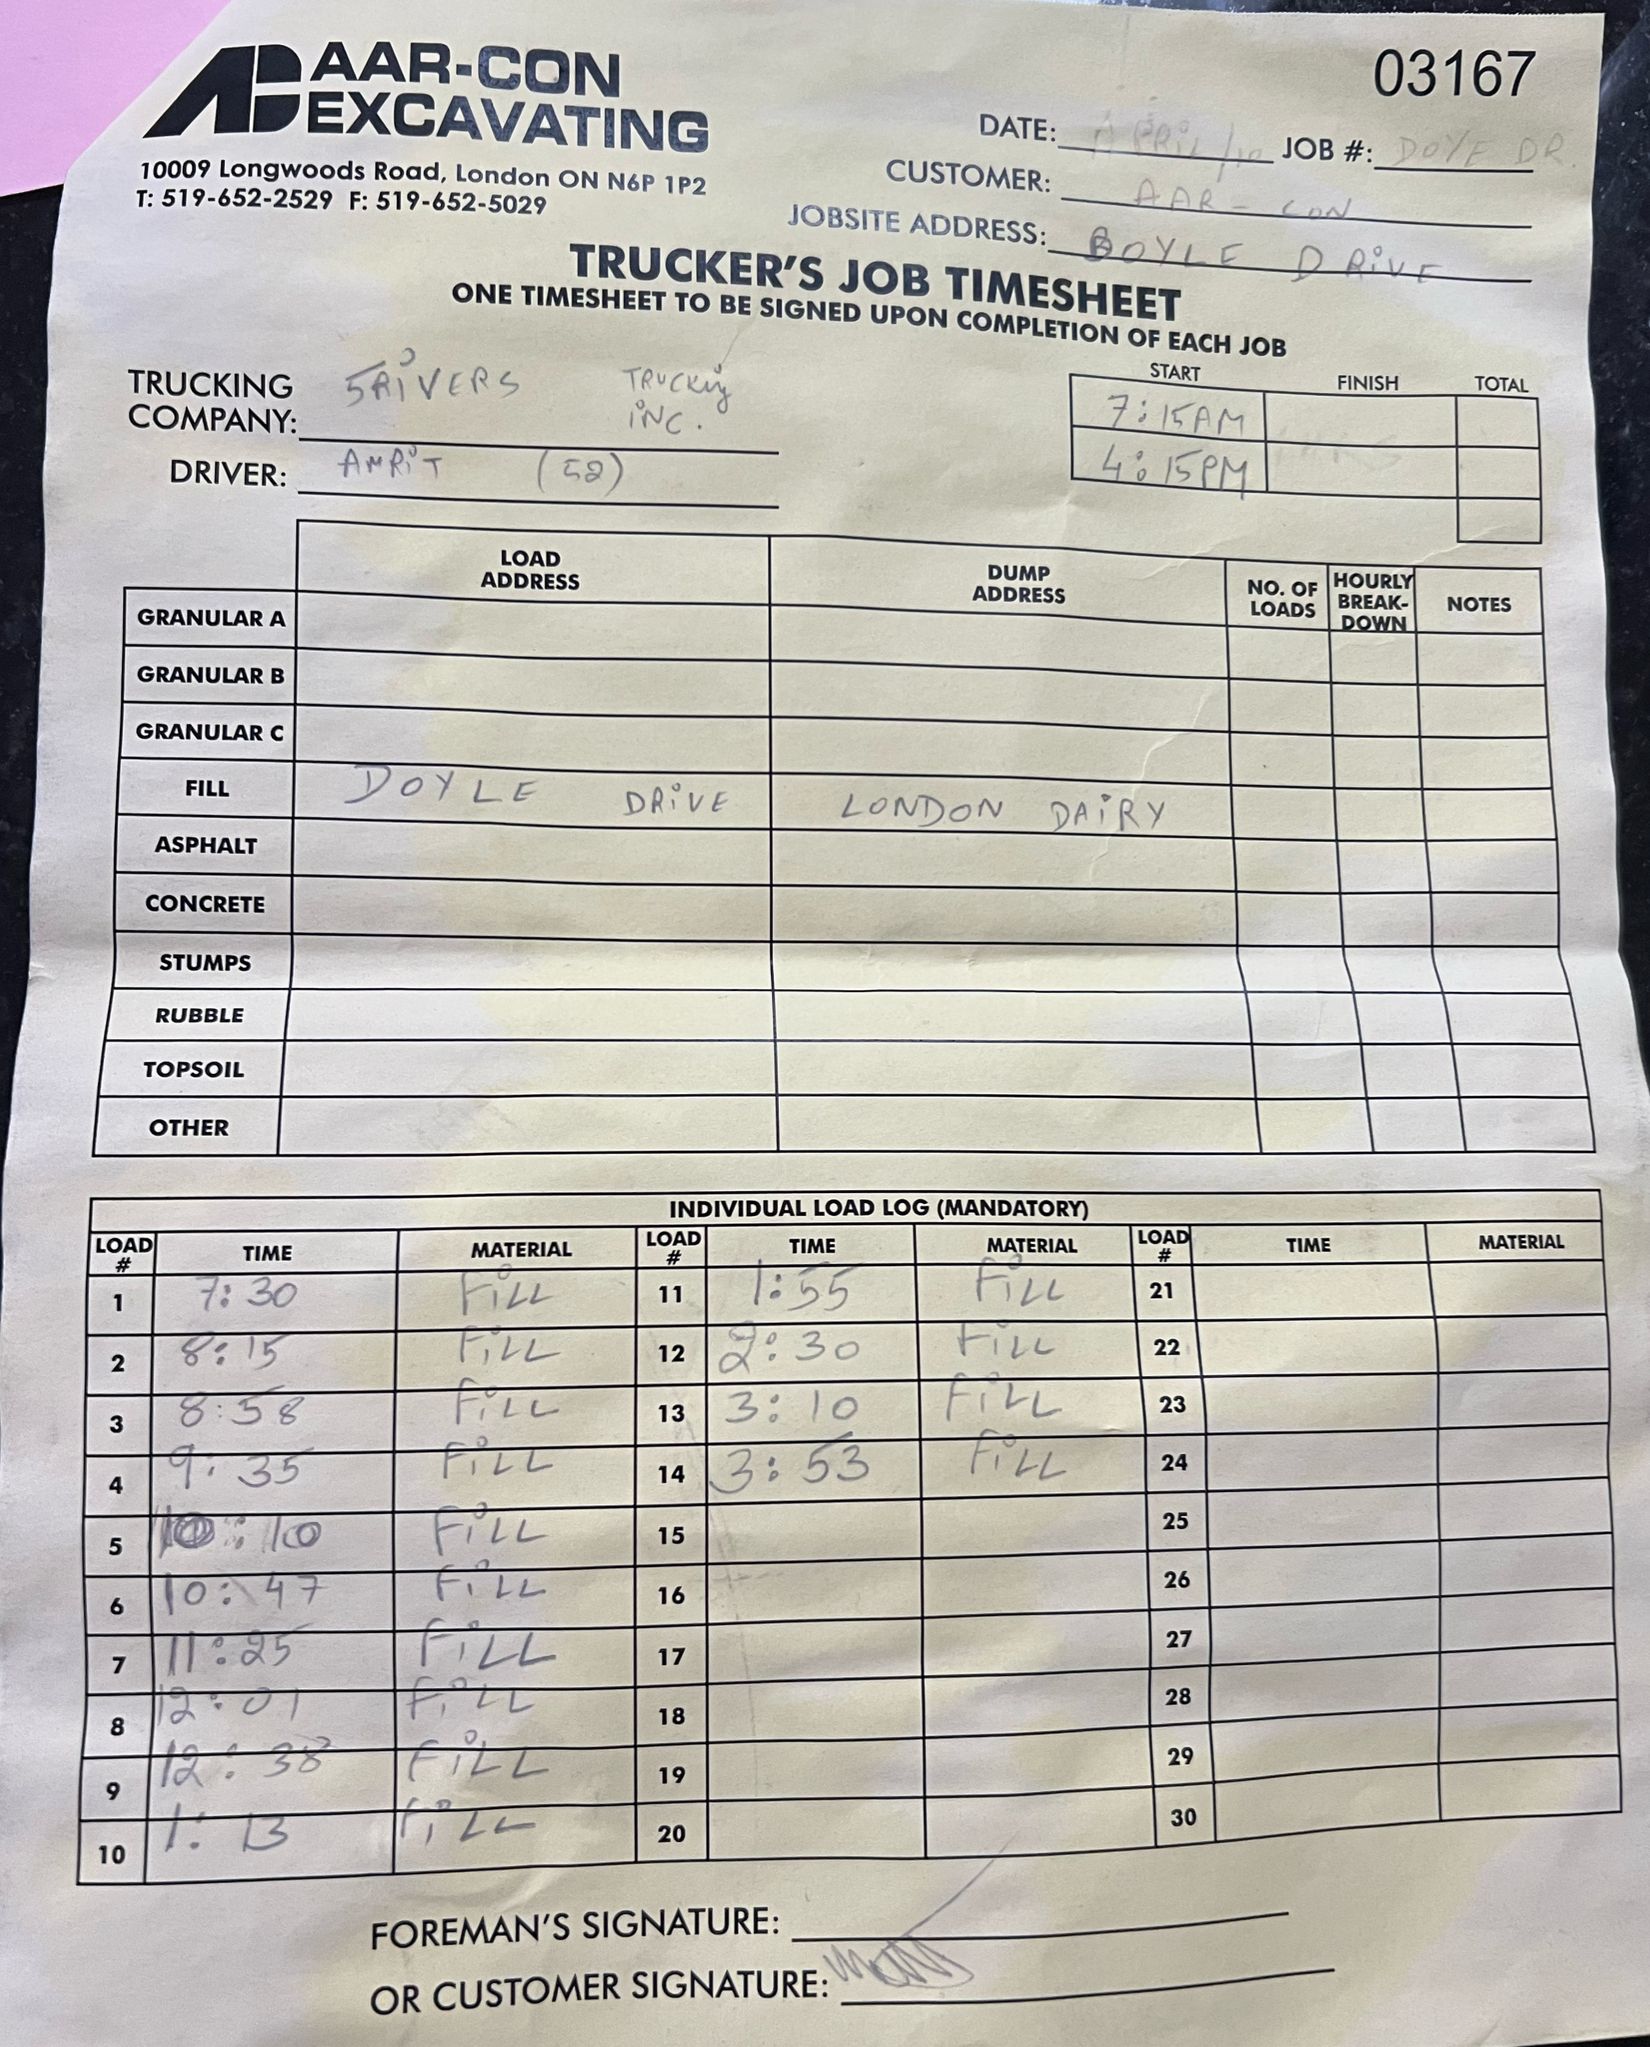 AAR-CON
EXCAVATING
10009 Longwoods Road, London ON N6P 1P2
T: 519-652-2529 F: 519-652-5029
03167
DATE: APRIL/10 JOB #: DOYE DR.
CUSTOMER: AAR-CON
JOBSITE ADDRESS: BOYLE DRIVE
TRUCKER'S JOB TIMESHEET
ONE TIMESHEET TO BE SIGNED UPON COMPLETION OF EACH JOB
TRUCKING COMPANY: 5RIVERS TRUCKING INC.
DRIVER: AMRIT (52)
START FINISH TOTAL
7:15AM
4:15PM
LOAD ADDRESS DUMP ADDRESS NO. OF LOADS HOURLY BREAK-DOWN NOTES
GRANULAR A
GRANULAR B
GRANULAR C
FILL DOYLE DRIVE LONDON DAIRY
ASPHALT
CONCRETE
STUMPS
RUBBLE
TOPSOIL
OTHER
INDIVIDUAL LOAD LOG (MANDATORY)
LOAD # TIME MATERIAL LOAD # TIME MATERIAL LOAD # TIME MATERIAL
1 7:30 FILL 11 1:55 FILL 21
2 8:15 FILL 12 2:30 FILL 22
3 8:58 FILL 13 3:10 FILL 23
4 9:35 FILL 14 3:53 FILL 24
5 10:10 FILL 15 25
6 10:47 FILL 16 26
7 11:25 FILL 17 27
8 12:01 FILL 18 28
9 12:38 FILL 19 29
10 1:13 FILL 20 30
FOREMAN'S SIGNATURE:
OR CUSTOMER SIGNATURE: